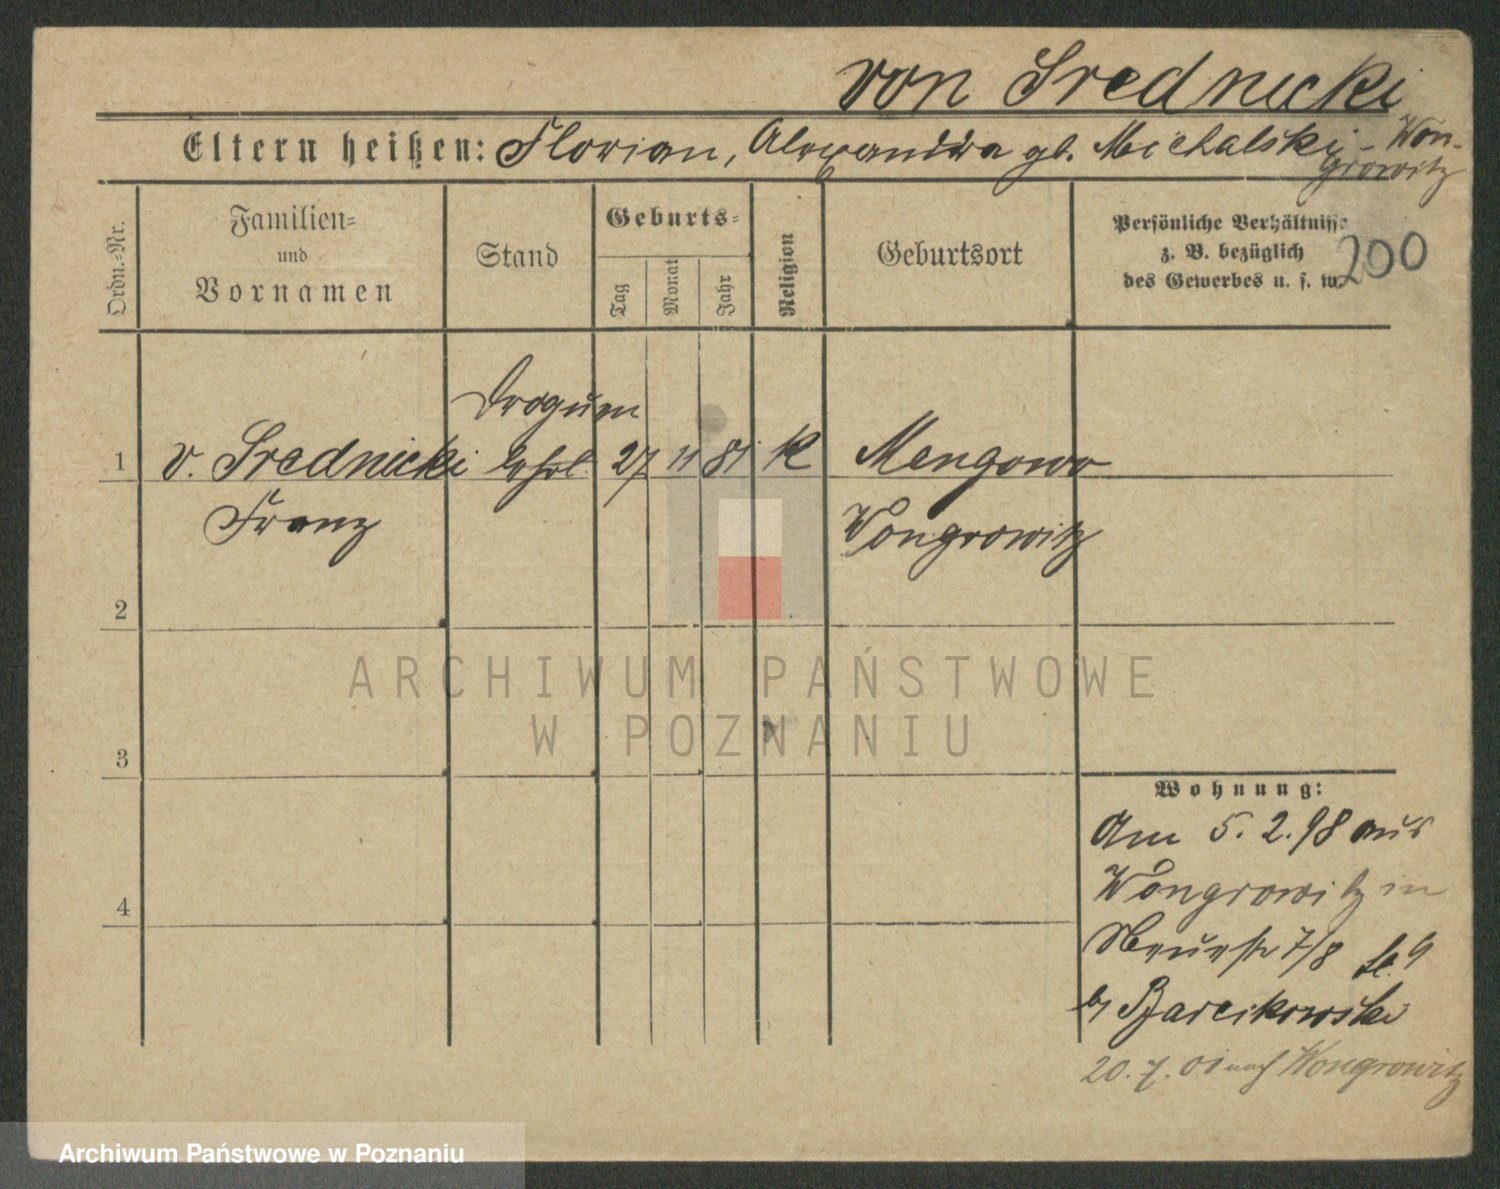 von Srednicki
Eltern heißen: Florian, Alexandra gb. Michalski - Won-
growitz
Ordn.-Nr.
Familien-
und
Vornamen
Stand
Geburts-
Tag
Monat
Jahr
Religion
Geburtsort
Persönliche Verhältnisse
z. B. bezüglich
des Gewerbes u. s. w.
200
Drogum
1 v. Srednicki Lehrl. 27 11 81 K Mengowo
Franz Wongrowitz
2
ARCHIWUM PAŃSTWOWE
W POZNANIU
3
Wohnung:
Am 5. 2. 98 aus
Wongrowitz in
Neuestr 7/8
b Barcikowski
4
20. 7. 01 nach Wongrowitz
Archiwum Państwowe w Poznaniu